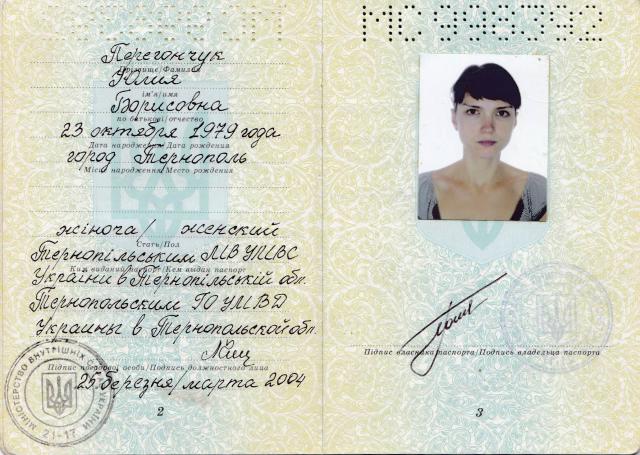 МС 998392
Перегончук
Прізвище/Фамилия
Юлия
ім'я/имя
Борисовна
по батькові/отчество
23 октября 1979 года
Дата народження/Дата рождения
город Тернополь
Місце народження/Место рождения
жіноча/женский
Стать/Пол
Тернопільським МВ УМВС
Ким виданий паспорт/Кем выдан паспорт
України в Тернопільській обл.
Тернопольским ГО УМВД
Украины в Тернопольской обл.
Підпис посадової особи/Подпись должностного лица
25 березня/марта 2004
МІНІСТЕРСТВО ВНУТРІШНІХ УКРАЇНИ
21-17
2
Підпис власника паспорта/Подпись владельца паспорта
3